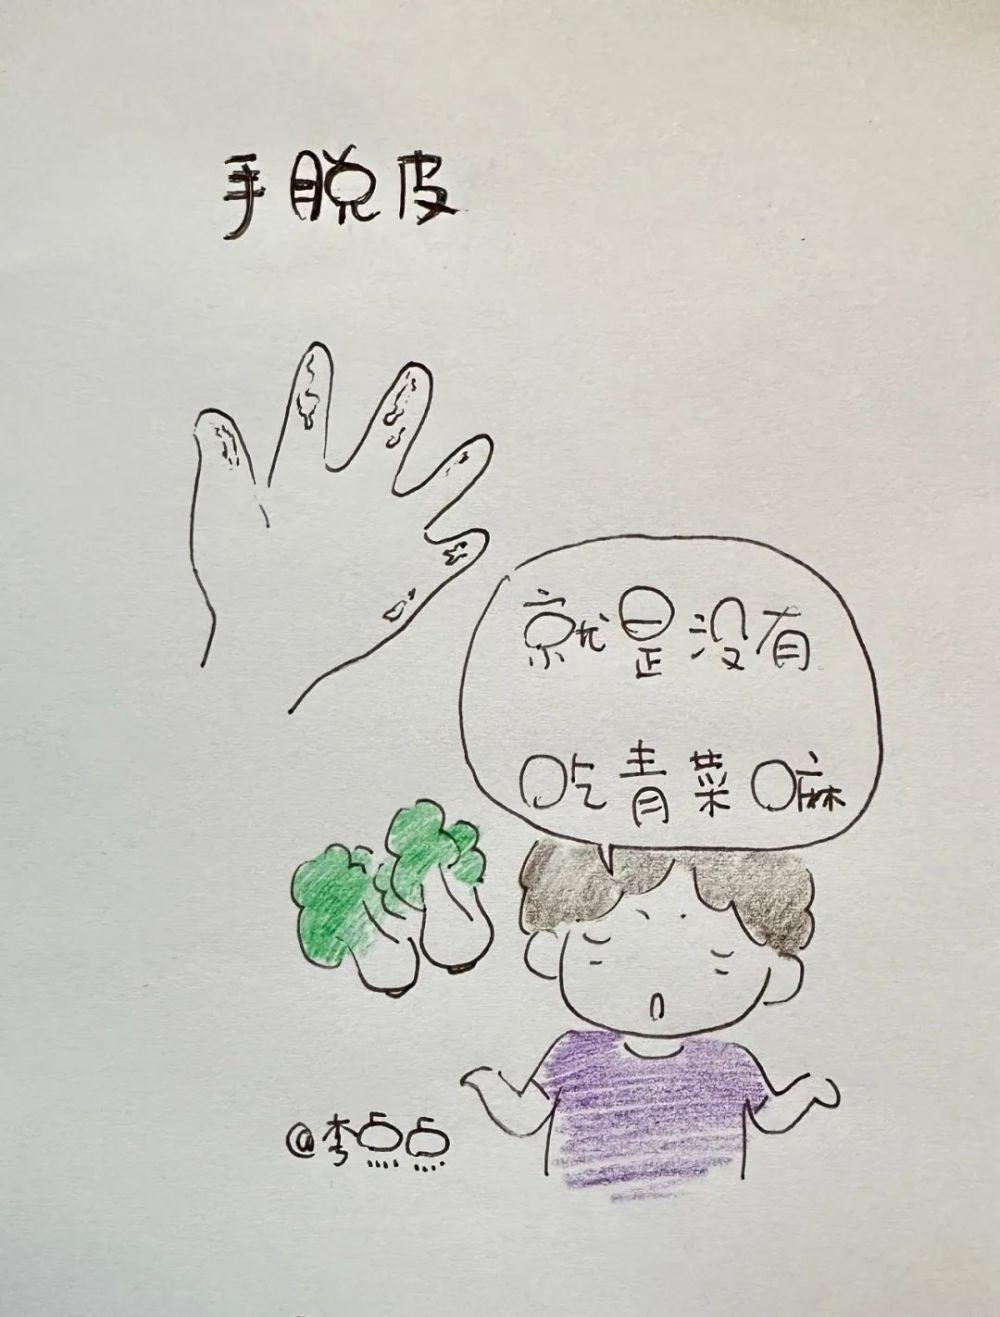 手脱皮
就是没有
吃青菜嘛
@李点点